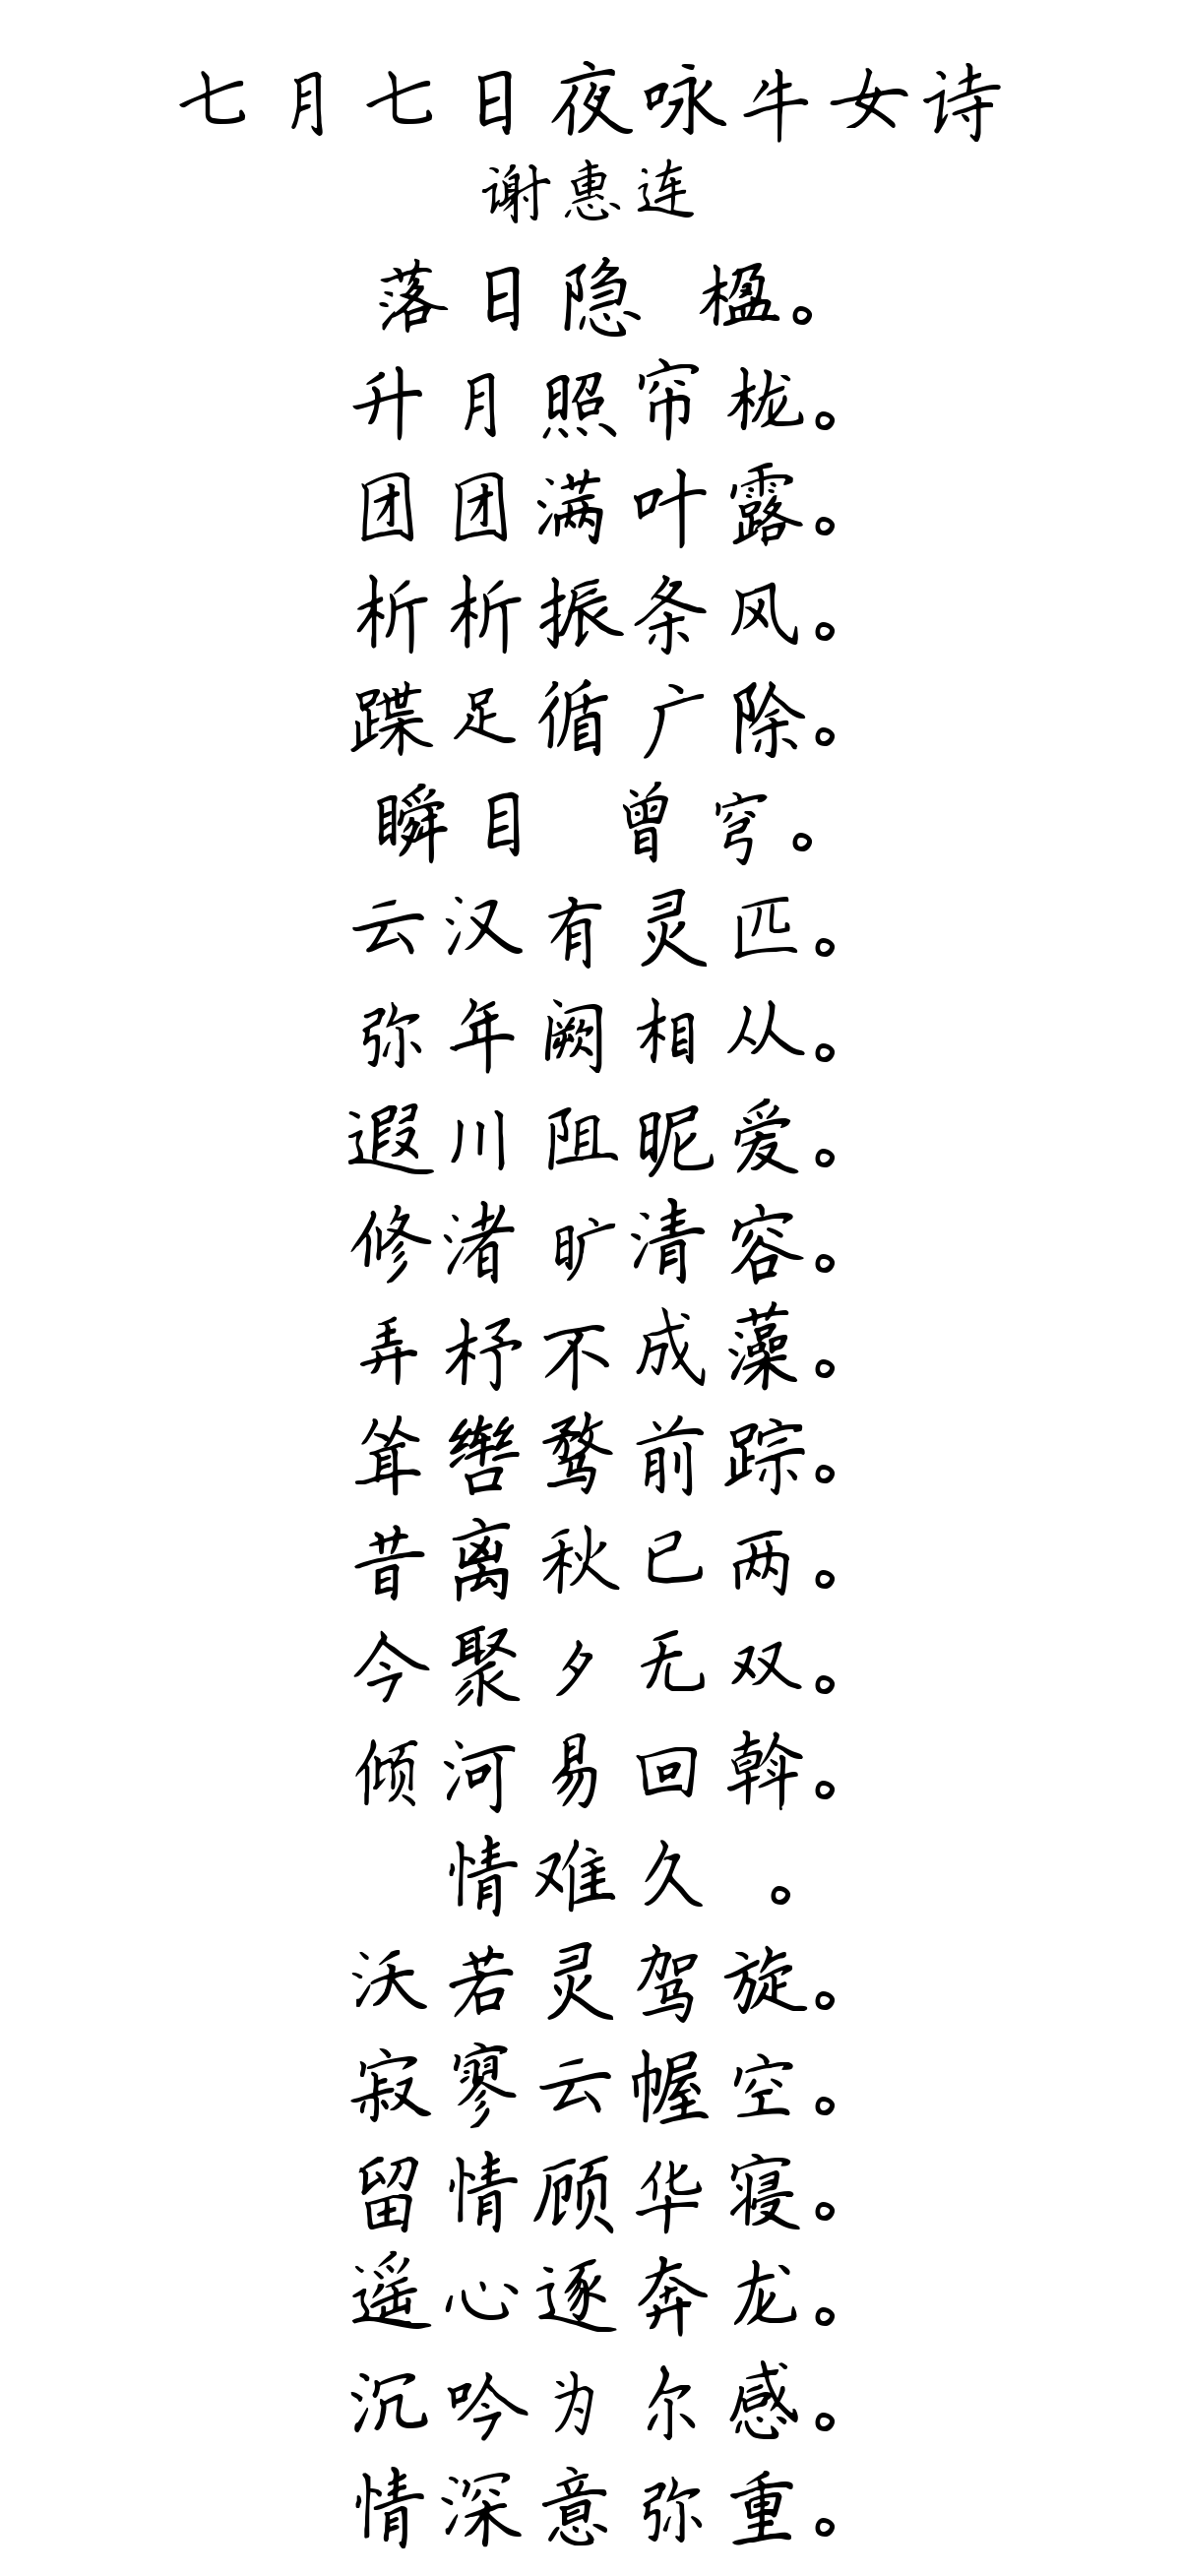 七月七日夜咏牛女诗
谢惠连
落日隐 楹。
升月照帘栊。
团团满叶露。
析析振条风。
蹀足循广除。
瞬目 曾穹。
云汉有灵匹。
弥年阙相从。
遐川阻昵爱。
修渚旷清容。
弄杼不成藻。
耸辔骛前踪。
昔离秋已两。
今聚夕无双。
倾河易回斡。
情难久 。
沃若灵驾旋。
寂寥云幄空。
留情顾华寝。
遥心逐奔龙。
沉吟为尔感。
情深意弥重。